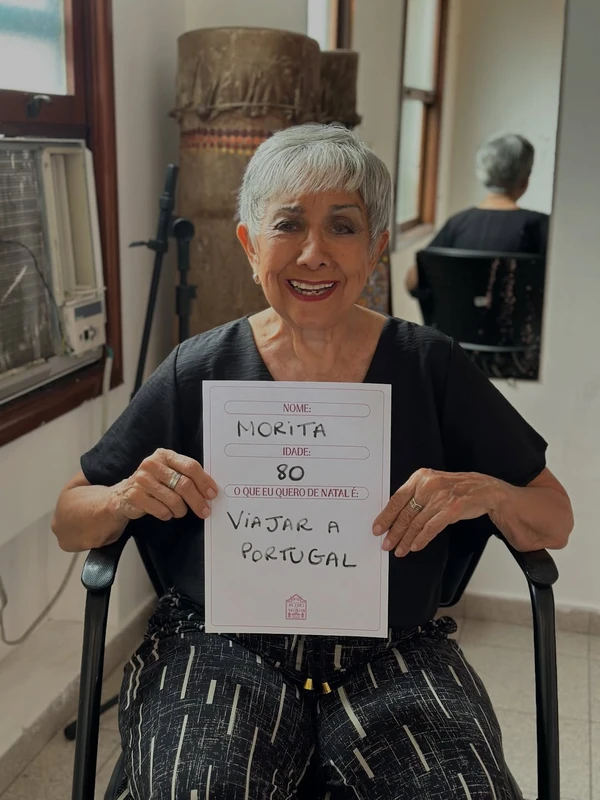 NOME:
MORITA
IDADE:
80
O QUE EU QUERO DE NATAL É:
VIAJAR A
PORTUGAL